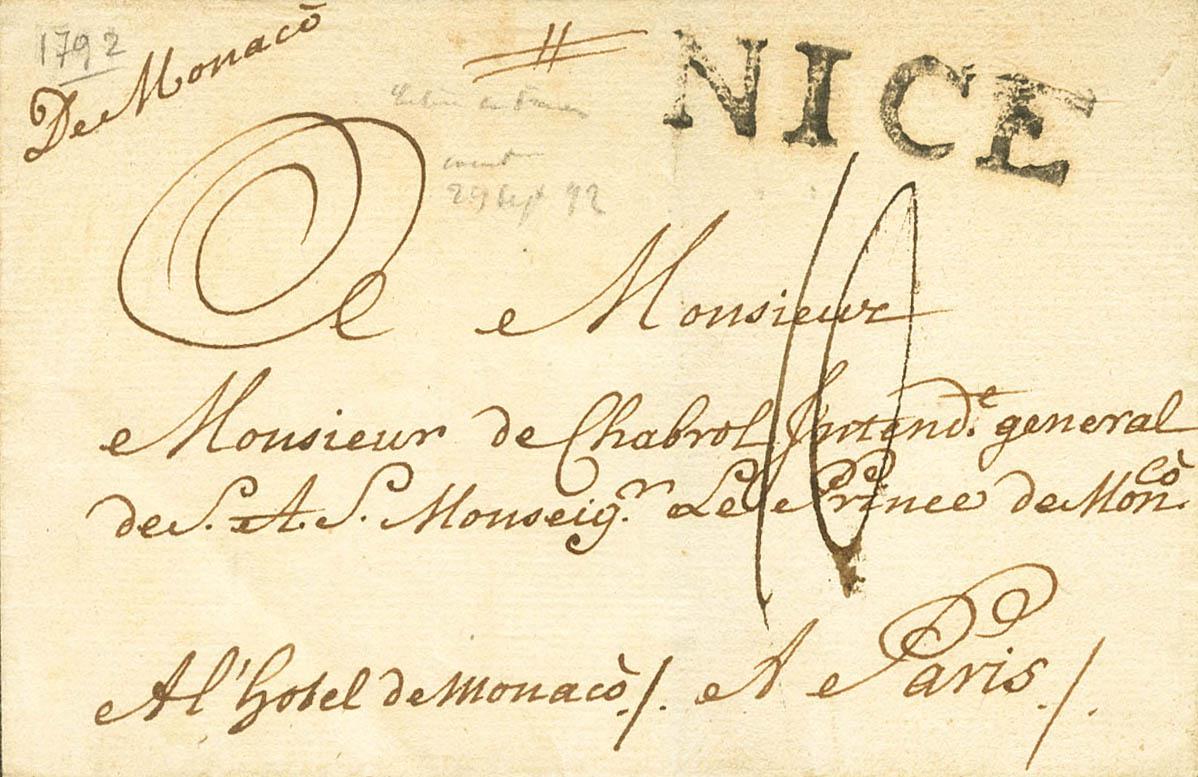 1792
De Monacò
NICE
29 Sept 92
10
A Monsieur
Monsieur de Chabrol Intend.e general
de S. A. S. Monseig.r Le Prince de Mon.cò
A l'hotel de Monacò ./. A Paris ./.